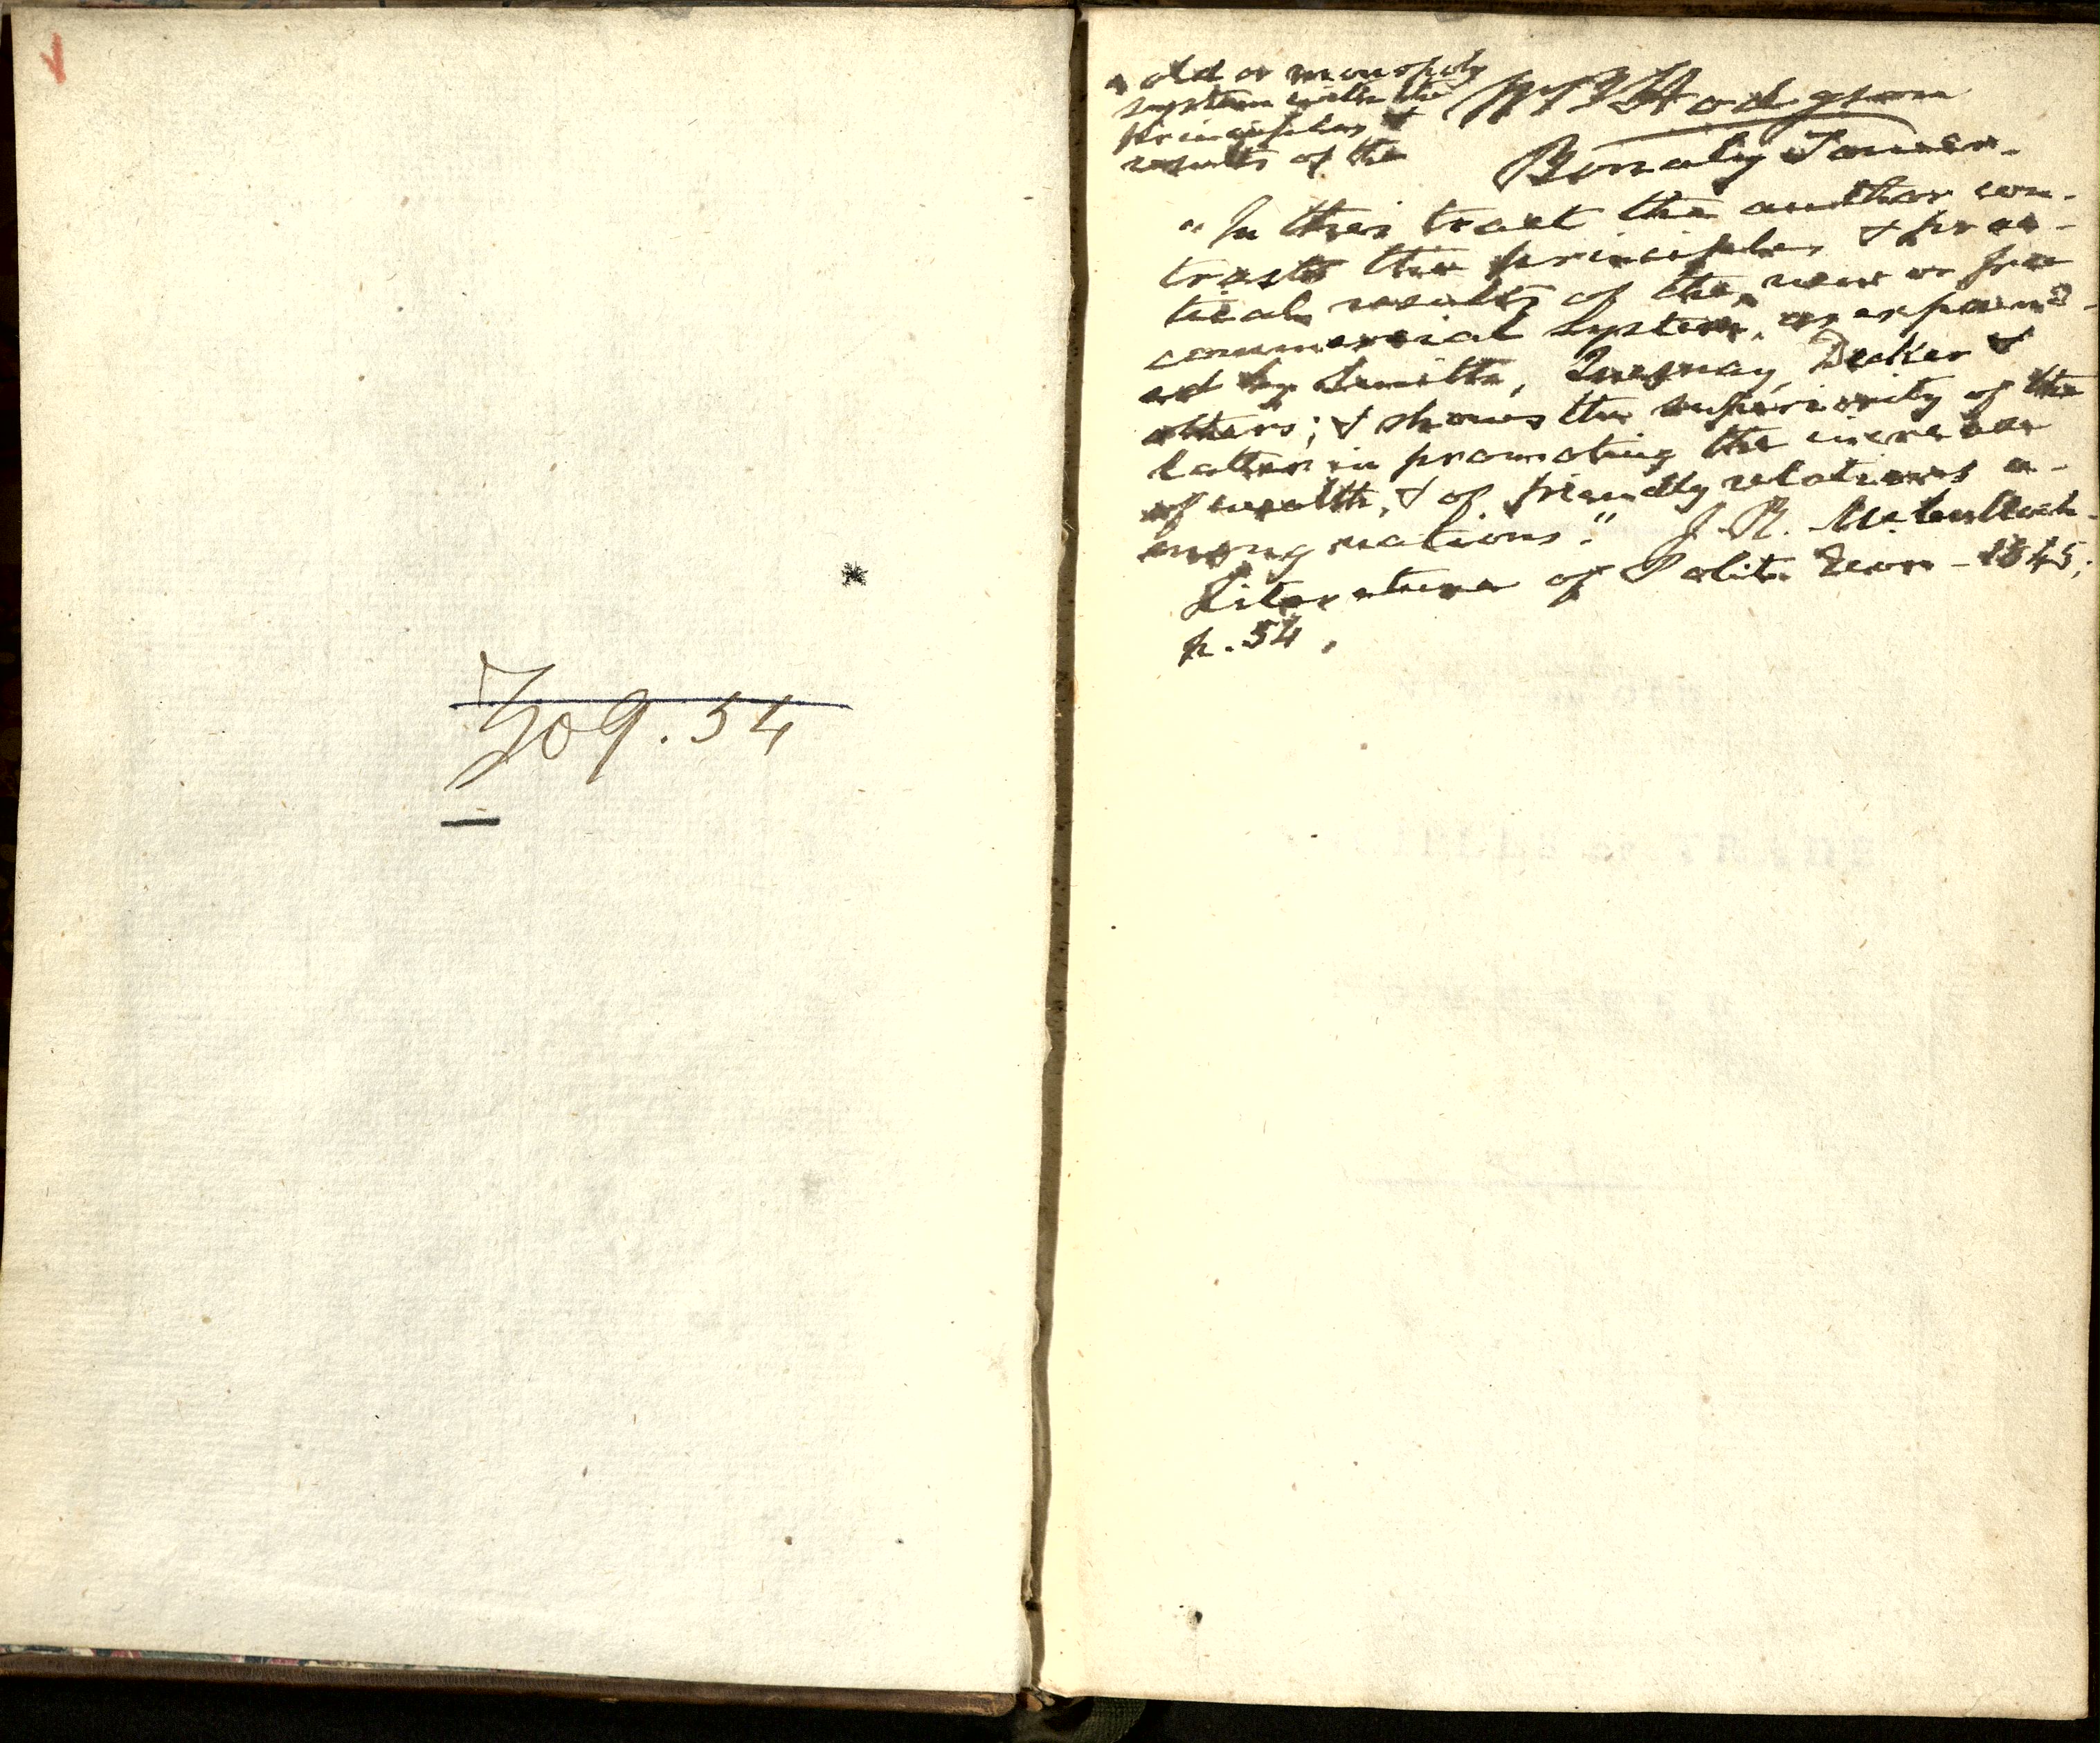 Jo9.54
^ old or monopoly
system with the
principles &
results of the
W B Hodgson
Bonaly Tower.
"In this tract the author con-
trasts the principles & prac-
tical results of the ^ new or free
commercial system, as expound-
ed by Smith, Quesnay, Decker &
others; & shows the superiority of the
latter in promoting the increase
of wealth, & of friendly relations a-
mong nations." J. R. McCulloch.
Literature of Polit. Econ - 1845;
p. 54.